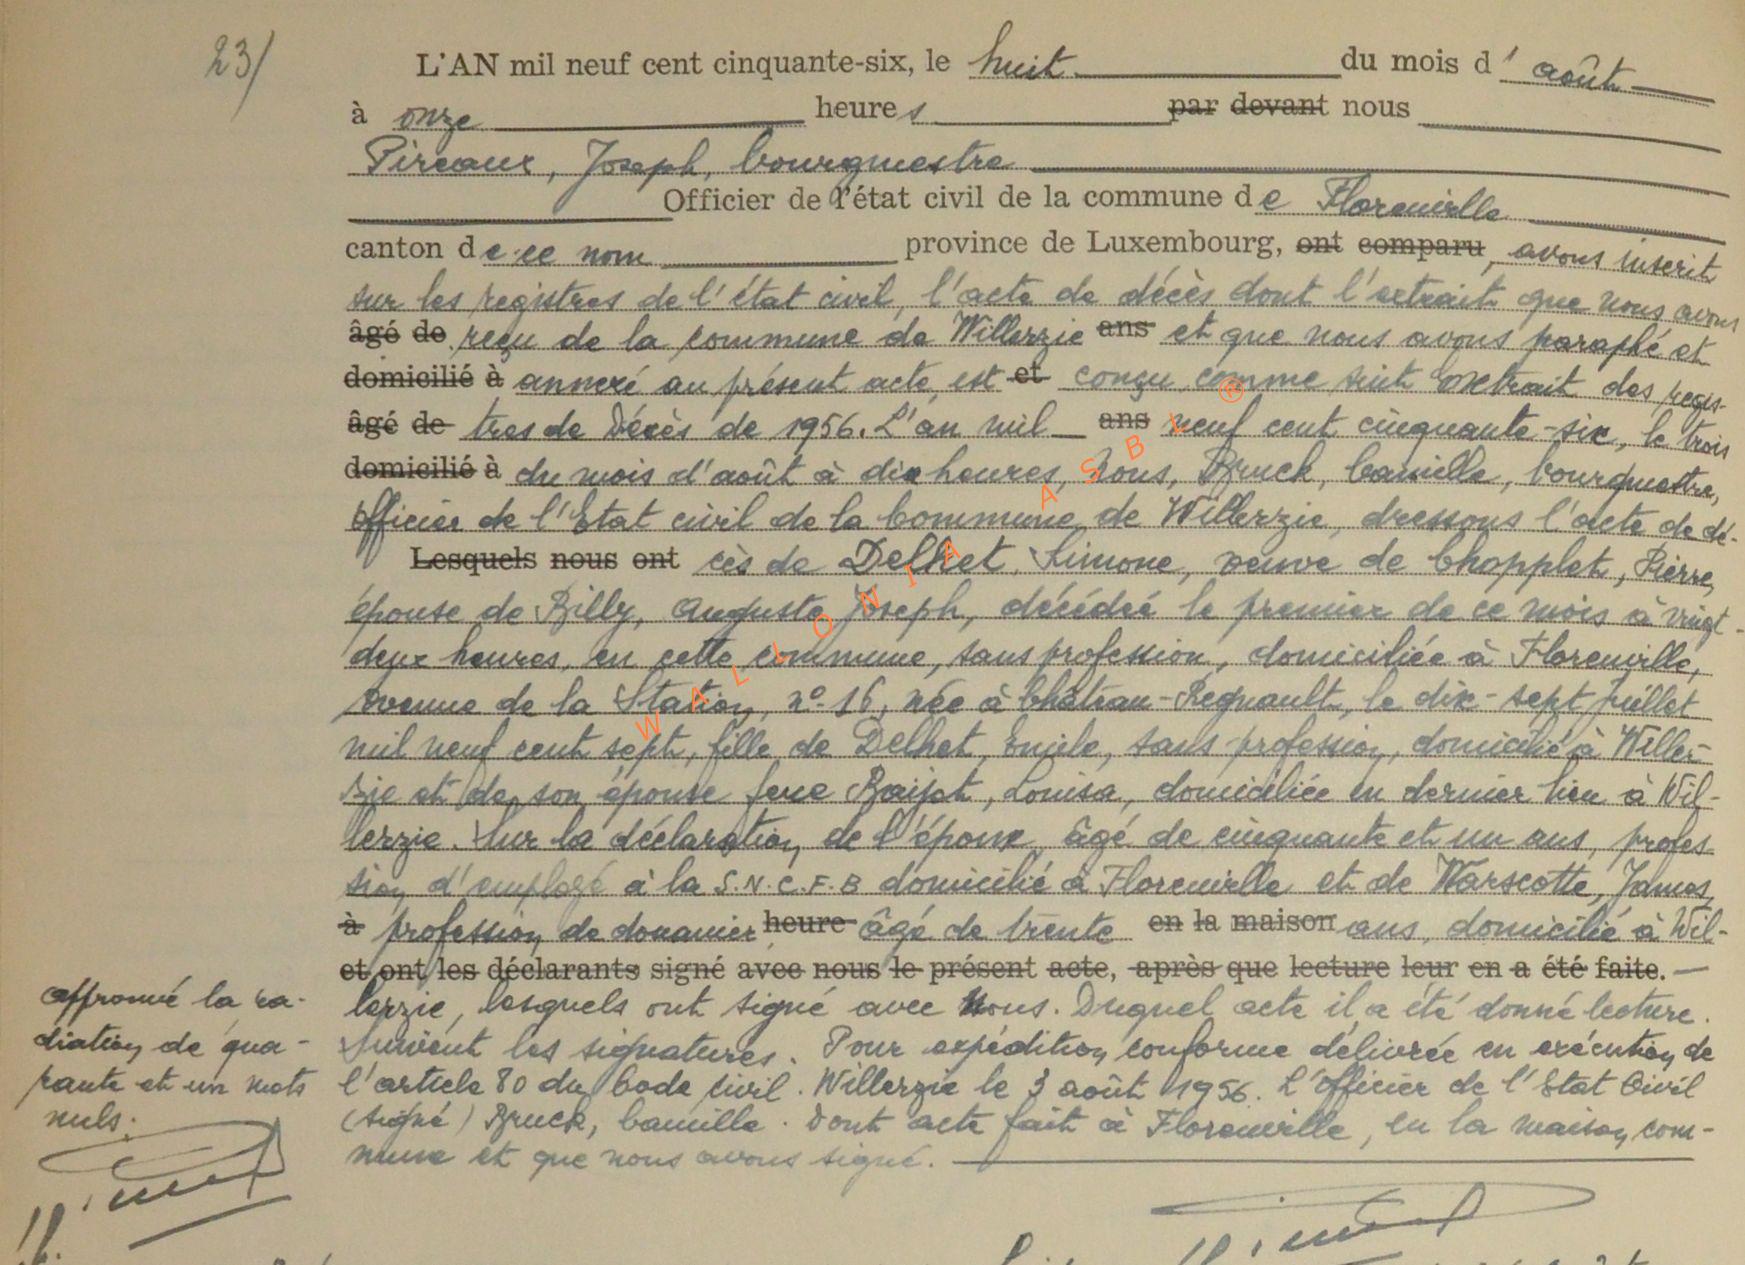 23/
L'AN mil neuf cent cinquante-six, le huit du mois d'août
à onze heures par devant nous
Pireaux, Joseph, bourgmestre
Officier de l'état civil de la commune de Florenville
canton de ce nom province de Luxembourg, ont comparu, avons inscrit
sur les registres de l'état civil, l'acte de décès dont l'extrait que nous avons
âgé de reçu de la commune de Willerzie ans et que nous avons paraphé et
domicilié à annexé au présent acte, est et conçu comme suit Extrait des regis-
âgé de tres de Décès de 1956. L'an mil ans neuf cent cinquante-six, le trois
domicilié à du mois d'août à dix heures, Nous, Bruck, Camille, bourgmestre,
officier de l'Etat civil de la Commune de Willerzie, dressons l'acte de dé-
Lesquels nous ont cès de Delhet, Simone, veuve de Chopplet, Pierre,
épouse de Billy, Auguste Joseph, décédée le premier de ce mois à vingt-
deux heures, en cette commune, sans profession, domiciliée à Florenville,
avenue de la Station, n° 16, née à Château-Regnault, le dix-sept juillet
mil neuf cent sept, fille de Delhet, Emile, sans profession, domicilié à Willer-
zie et de son épouse feue Baijot, Louisa, domiciliée en dernier lieu à Wil-
lerzie. Sur la déclaration de l'époux âgé de cinquante et un ans, profes-
sion d'employé à la S.N.C.F.B domicilié à Florenville et de Warscotte, James,
à profession de douanier heure âgé de trente en la maison ans, domicilié à Wil-
et ont les déclarants signé avec nous le présent acte, après que lecture leur en a été faite.
lerzie, lesquels ont signé avec Nous. Duquel acte il a été donné lecture.
Suivent les signatures. Pour expédition conforme délivrée en exécution de
l'article 80 du Code Civil. Willerzie le 3 août 1956. L'Officier de l'Etat Civil
(signé) Bruck, Camille. Dont acte fait à Florenville, en la maison com-
mune et que nous avons signé.
approuvé la ra-
diation de qua-
rante et un mots
nuls.
WALLONIA ASBL ®